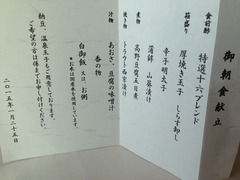 御朝食献立
食前酢
特選十六ブレンド
箱盛り
厚焼き玉子 しらす卸し
辛子明太子
蒲鉾 山葵漬け
煮物
高野豆腐五目煮
焼き物
トラウト西京漬け
汁物
あおさ、豆腐の味噌汁
香の物
白御飯 又は お粥
納豆、温泉玉子もご用意しております。
ご希望の方は係までお申し付けください。
二〇一五年一月二十五日